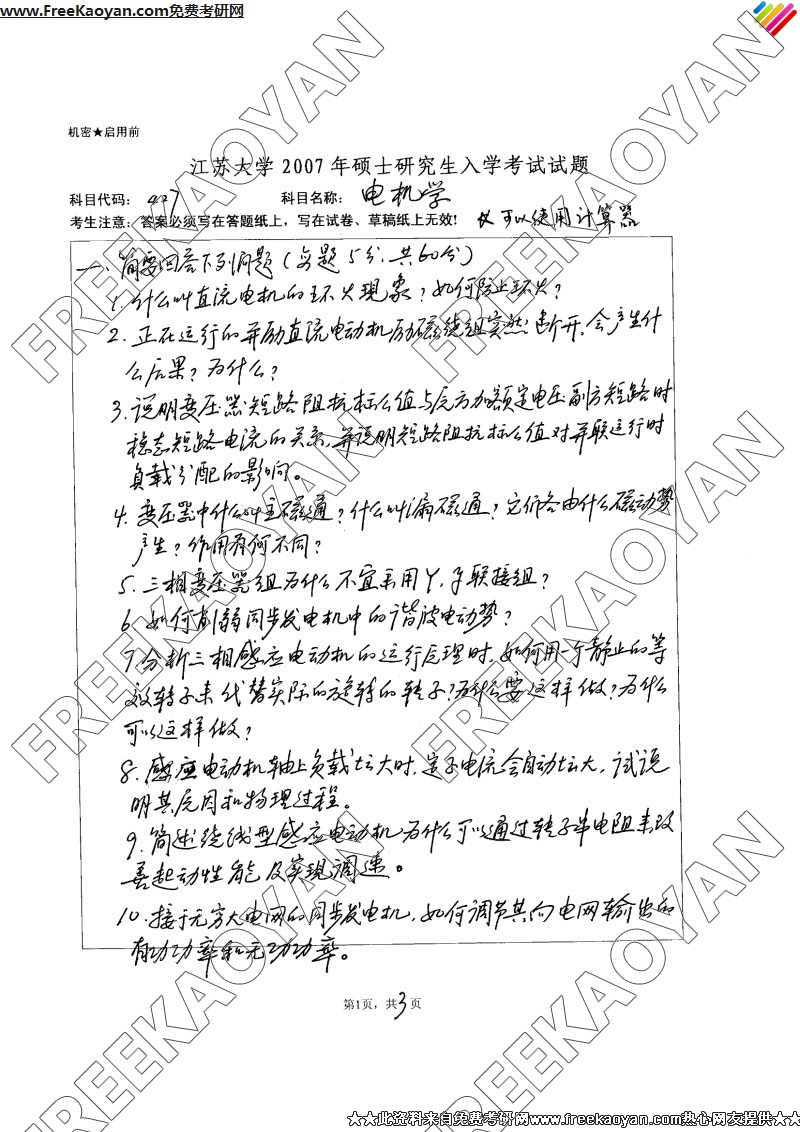 www.FreeKaoyan.com免费考研网
机密★启用前
江苏大学 2007 年硕士研究生入学考试试题
科目代码: 427 科目名称: 电机学
考生注意: 答案必须写在答题纸上，写在试卷、草稿纸上无效! 仅可以使用计算器
一、简要回答下列问题（每题5分，共60分）
1. 什么叫直流电机的环火现象？如何防止环火？
2. 正在运行的并励直流电动机励磁绕组突然断开，会产生什
么后果？为什么？
3. 说明变压器短路阻抗标么值与原方加额定电压副方短路时
稳态短路电流的关系，并说明短路阻抗标么值对并联运行时
负载分配的影响。
4. 变压器中什么叫主磁通？什么叫漏磁通？它们各由什么磁动势
产生？作用有何不同？
5. 三相变压器组为什么不宜采用Y，y联接组？
6. 如何削弱同步发电机中的谐波电动势？
7. 分析三相感应电动机的运行原理时，如何用一个静止的等
效转子来代替实际的旋转的转子？为什么要这样做？为什么
可以这样做？
8. 感应电动机轴上负载增大时，定子电流会自动增大，试说
明其原因和物理过程。
9. 简述绕线型感应电动机为什么可以通过转子串电阻来改
善起动性能及实现调速。
10. 接于无穷大电网的同步发电机，如何调节其向电网输出的
有功功率和无功功率。
第1页，共3页
★★此资料来自免费考研网www.freekaoyan.com热心网友提供★★
FREEKAOYAN
FREEKAOYAN
FREEKAOYAN
FREEKAOYAN
FREEKAOYAN
FREEKAOYAN